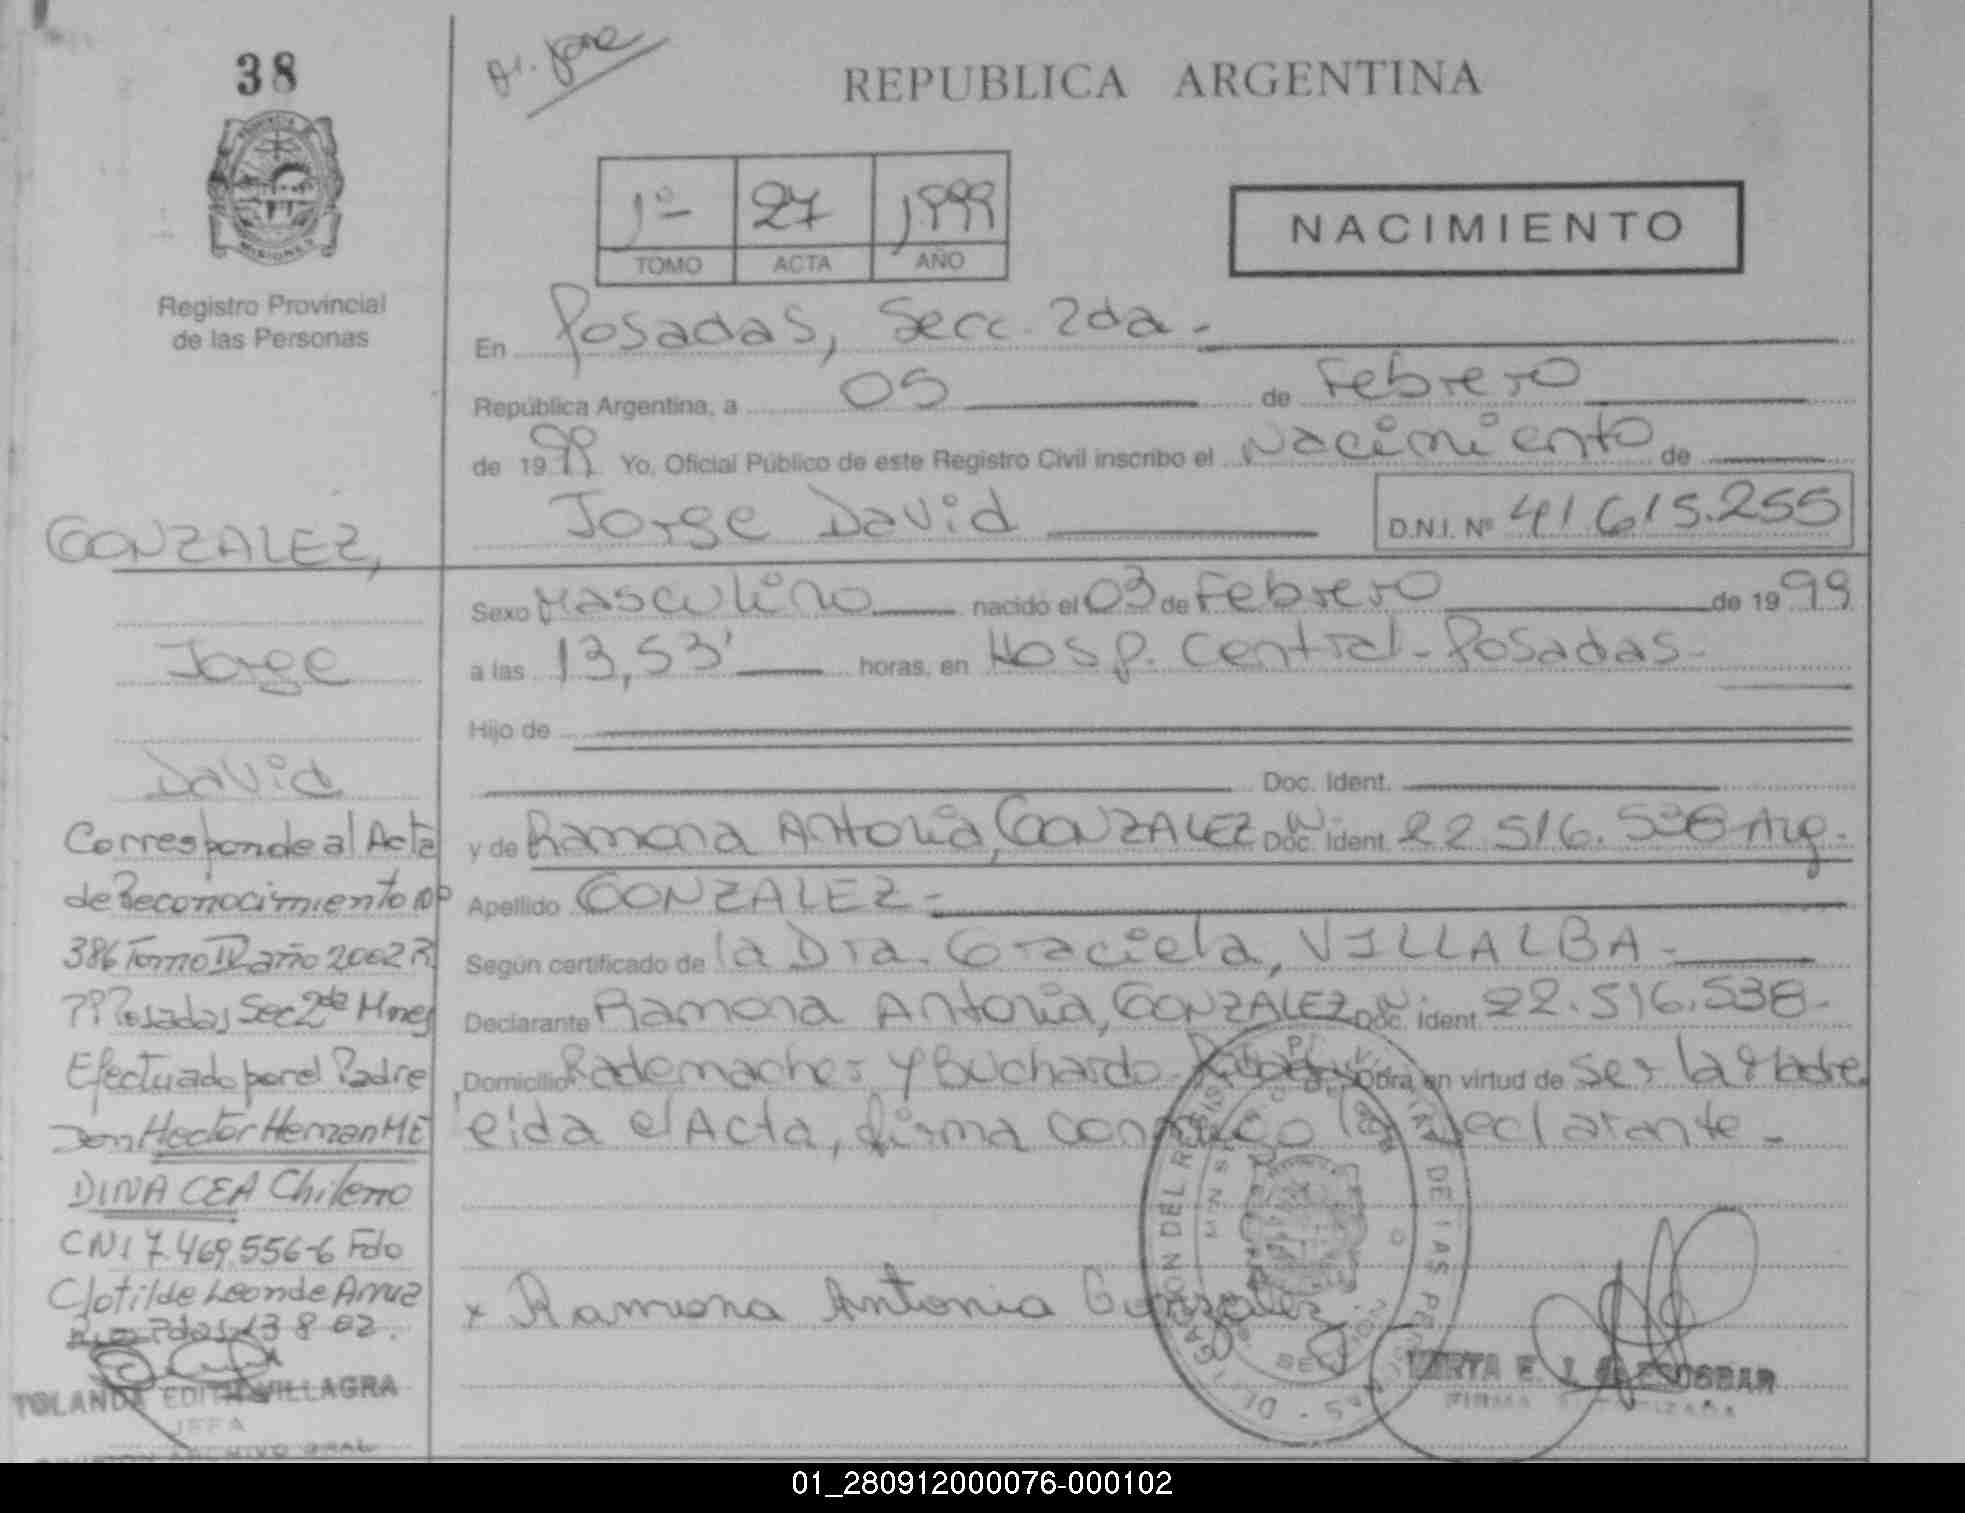 38
REPUBLICA ARGENTINA
1º 27 1999
TOMO ACTA AÑO
NACIMIENTO
Registro Provincial
de las Personas
En Posadas, Secc. 2da-
República Argentina, a 05 de Febrero
de 1999 Yo, Oficial Público de este Registro Civil inscribo el Nacimiento de
Jorge David D.N.I. Nº 41.615.255
Sexo Masculino nacido el 03 de Febrero de 1999
a las 13,53' horas, en Hosp. Central - Posadas-
Hijo de
Doc. Ident.
y de Ramona Antonia, GONZALEZ Doc. Ident. 22.516.538 Arg.
Apellido GONZALEZ-
Según certificado de la Dra. Graciela, VILLALBA-
Declarante Ramona Antonia, GONZALEZ Doc. Ident. 22.516.538-
Domicilio Rademacher y Buchardo Obra en virtud de ser la Madre
eida el Acta, firma conmigo la declarante-
x Ramona Antonia Gonzalez
ESCOBAR
FIRMA AUTORIZADA
GONZALEZ,
Jorge
David
Corresponde al Acta
de Reconocimiento nº
386 Tomo IV año 2002 R.
PP Posadas Sec 2da Mnes
Efectuado por el Padre
Don Hector Hernan ME
DINA CEA Chileno
CNI 7.469.556-6 Fdo
Clotilde Leon de Arrua
Pdas 13 8 02.
YOLANDA EDITH VILLAGRA
JEFA
DIVISION ARCHIVO GRAL
01_280912000076-000102